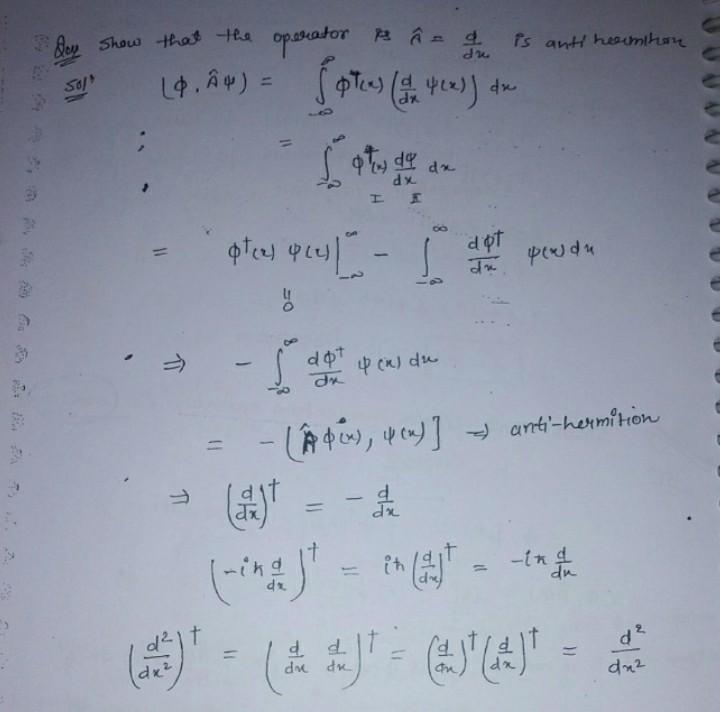 Que Show that the operator is Â = d/dx is anti hermition
Solⁿ (ϕ, Âψ) = ∫_{-∞}^{∞} ϕ†(x) (d/dx ψ(x)) dx
= ∫_{-∞}^{∞} ϕ†(x) dψ/dx dx
I II
= ϕ†(x) ψ(x)|_{-∞}^{∞} - ∫_{-∞}^{∞} dϕ†/dx ψ(x) dx
= 0
⇒ - ∫_{-∞}^{∞} dϕ†/dx ψ(x) dx
= - (Âϕ(x), ψ(x)] ⇒ anti-hermition
⇒ (d/dx)† = - d/dx
(-iħ d/dx)† = iħ (d/dx)† = -iħ d/dx
(d²/dx²)† = (d/dx d/dx)† = (d/dx)† (d/dx)† = d²/dx²